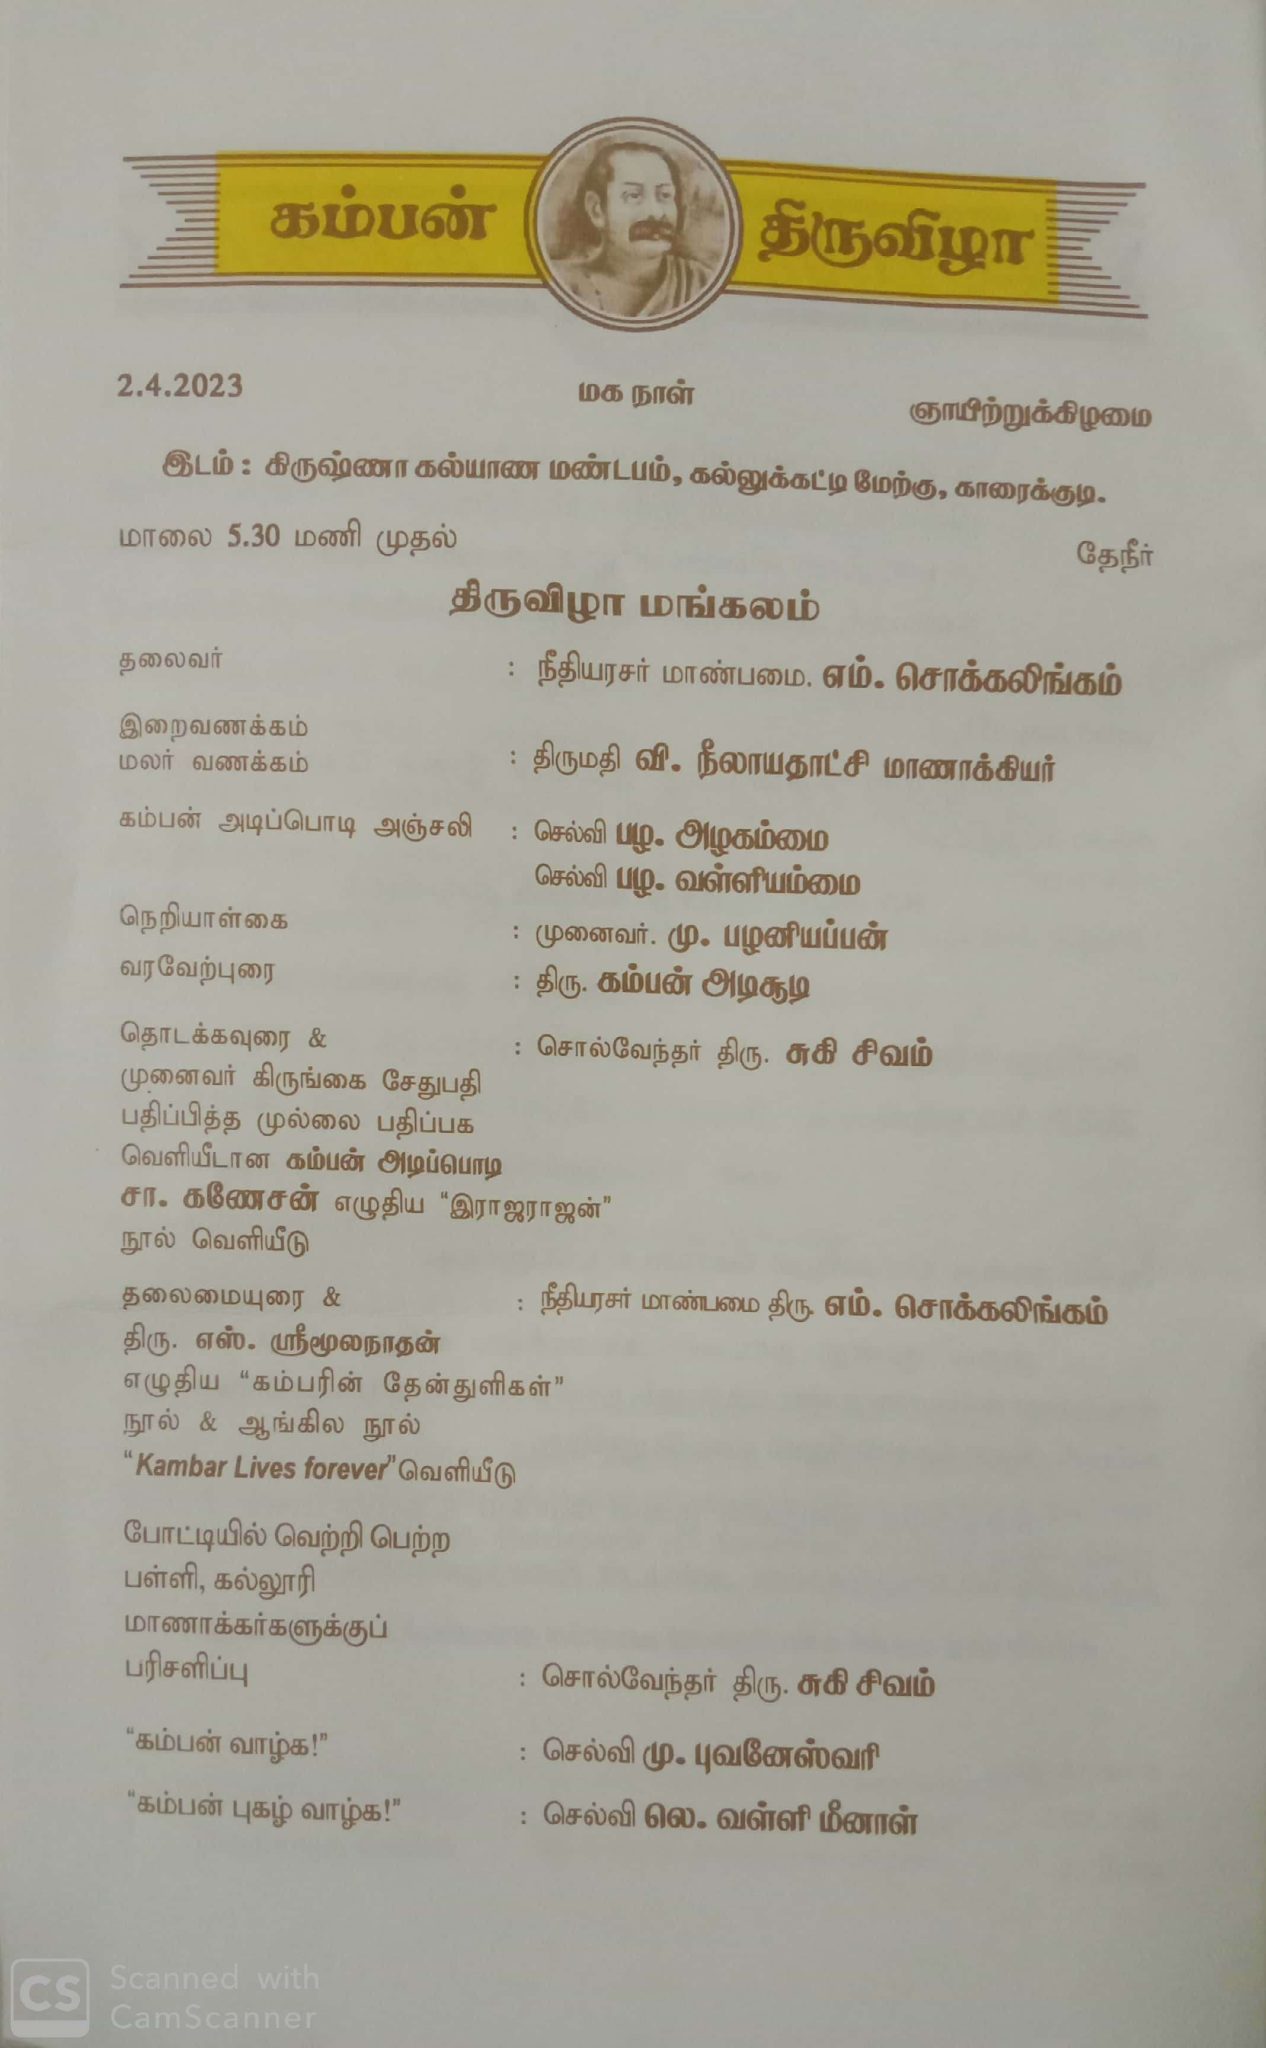 கம்பன் திருவிழா
2.4.2023 மக நாள் ஞாயிற்றுக்கிழமை
இடம் : கிருஷ்ணா கல்யாண மண்டபம், கல்லுக்கட்டி மேற்கு, காரைக்குடி.
மாலை 5.30 மணி முதல் தேநீர்
திருவிழா மங்கலம்
தலைவர் : நீதியரசர் மாண்பமை. எம். சொக்கலிங்கம்
இறைவணக்கம்
மலர் வணக்கம் : திருமதி வி. நீலாயதாட்சி மாணாக்கியர்
கம்பன் அடிப்பொடி அஞ்சலி : செல்வி பழ. அழகம்மை
செல்வி பழ. வள்ளியம்மை
நெறியாள்கை : முனைவர். மு. பழனியப்பன்
வரவேற்புரை : திரு. கம்பன் அடிசூடி
தொடக்கவுரை & : சொல்வேந்தர் திரு. சுகி சிவம்
முனைவர் கிருங்கை சேதுபதி
பதிப்பித்த முல்லை பதிப்பக
வெளியீடான கம்பன் அடிப்பொடி
சா. கணேசன் எழுதிய “இராஜராஜன்”
நூல் வெளியீடு
தலைமையுரை & : நீதியரசர் மாண்பமை திரு. எம். சொக்கலிங்கம்
திரு. எஸ். ஸ்ரீமூலநாதன்
எழுதிய “கம்பரின் தேன்துளிகள்”
நூல் & ஆங்கில நூல்
“Kambar Lives forever” வெளியீடு
போட்டியில் வெற்றி பெற்ற
பள்ளி, கல்லூரி
மாணாக்கர்களுக்குப்
பரிசளிப்பு : சொல்வேந்தர் திரு. சுகி சிவம்
“கம்பன் வாழ்க!” : செல்வி மு. புவனேஸ்வரி
“கம்பன் புகழ் வாழ்க!” : செல்வி லெ. வள்ளி மீனாள்
CS Scanned with
CamScanner